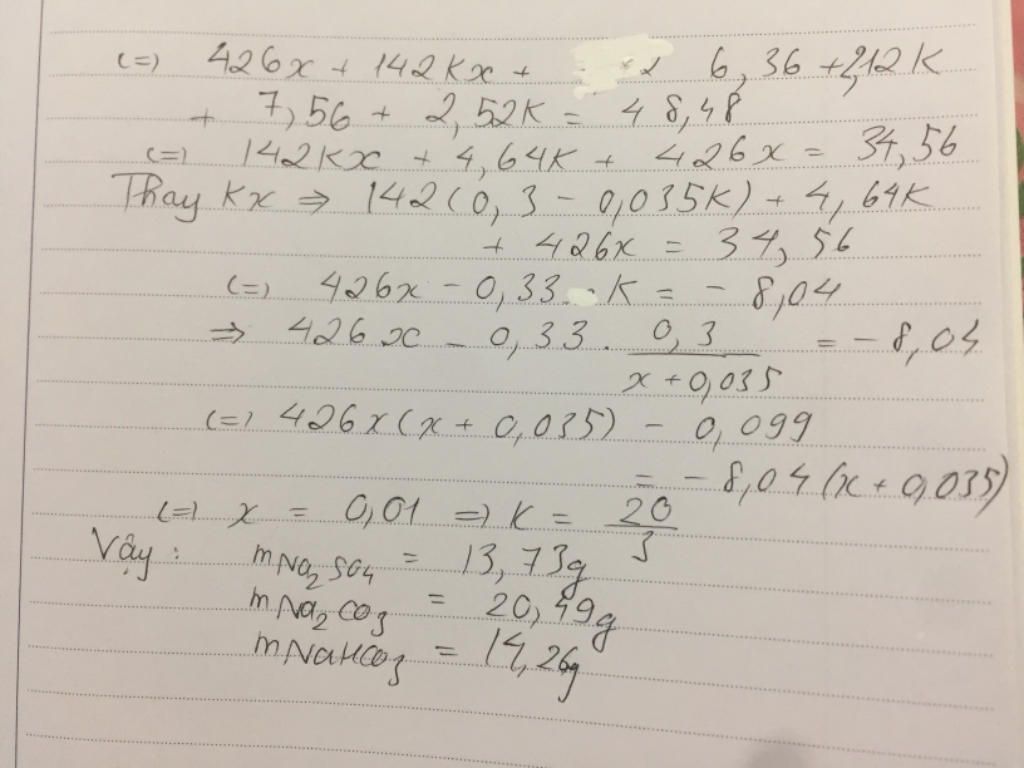 (=) 426x + 142Kx + 6,36 + 2,12K
+ 7,56 + 2,52K = 48,48
(=) 142Kx + 4,64K + 426x = 34,56
Thay Kx ⇒ 142(0,3 - 0,035K) + 4,64K
+ 426x = 34,56
(=) 426x - 0,33 . K = - 8,04
⇒ 426x - 0,33 . 0,3 / (x + 0,035) = - 8,04
(=) 426x(x + 0,035) - 0,099
= - 8,04(x + 0,035)
(=) x = 0,01 ⇒ K = 20/3
Vậy : mNa2SO4 = 13,73g
mNa2CO3 = 20,49g
mNaHCO3 = 14,26g